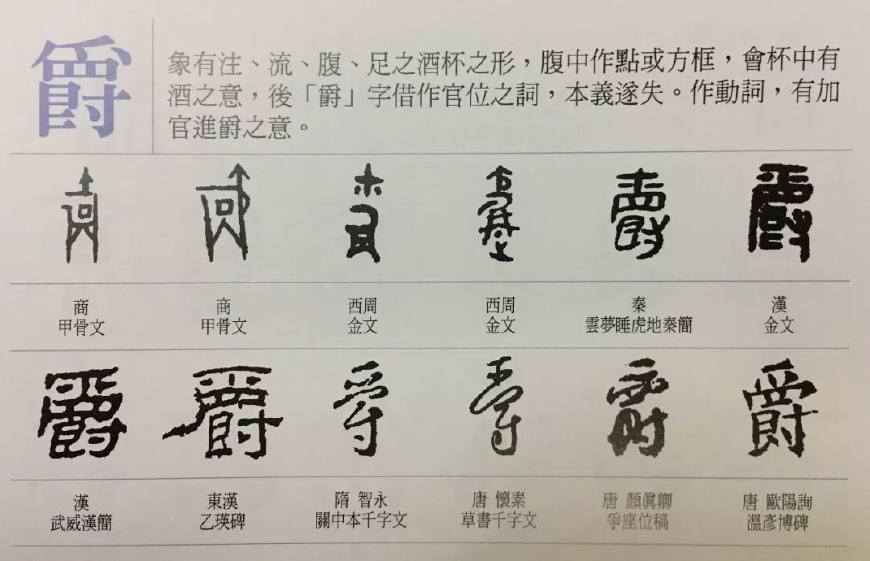 爵
象有注、流、腹、足之酒杯之形，腹中作點或方框，會杯中有
酒之意，後「爵」字借作官位之詞，本義遂失。作動詞，有加
官進爵之意。
商 商 西周 西周 秦 漢
甲骨文 甲骨文 金文 金文 雲夢睡虎地秦簡 金文
漢 東漢 隋 智永 唐 懷素 唐 顏眞卿 唐 歐陽詢
武威漢簡 乙瑛碑 關中本千字文 草書千字文 爭座位稿 溫彥博碑